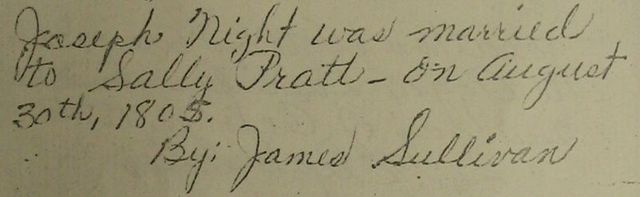 Joseph Night was married
to Sally Pratt - on August
30th, 1805.
By: James Sullivan